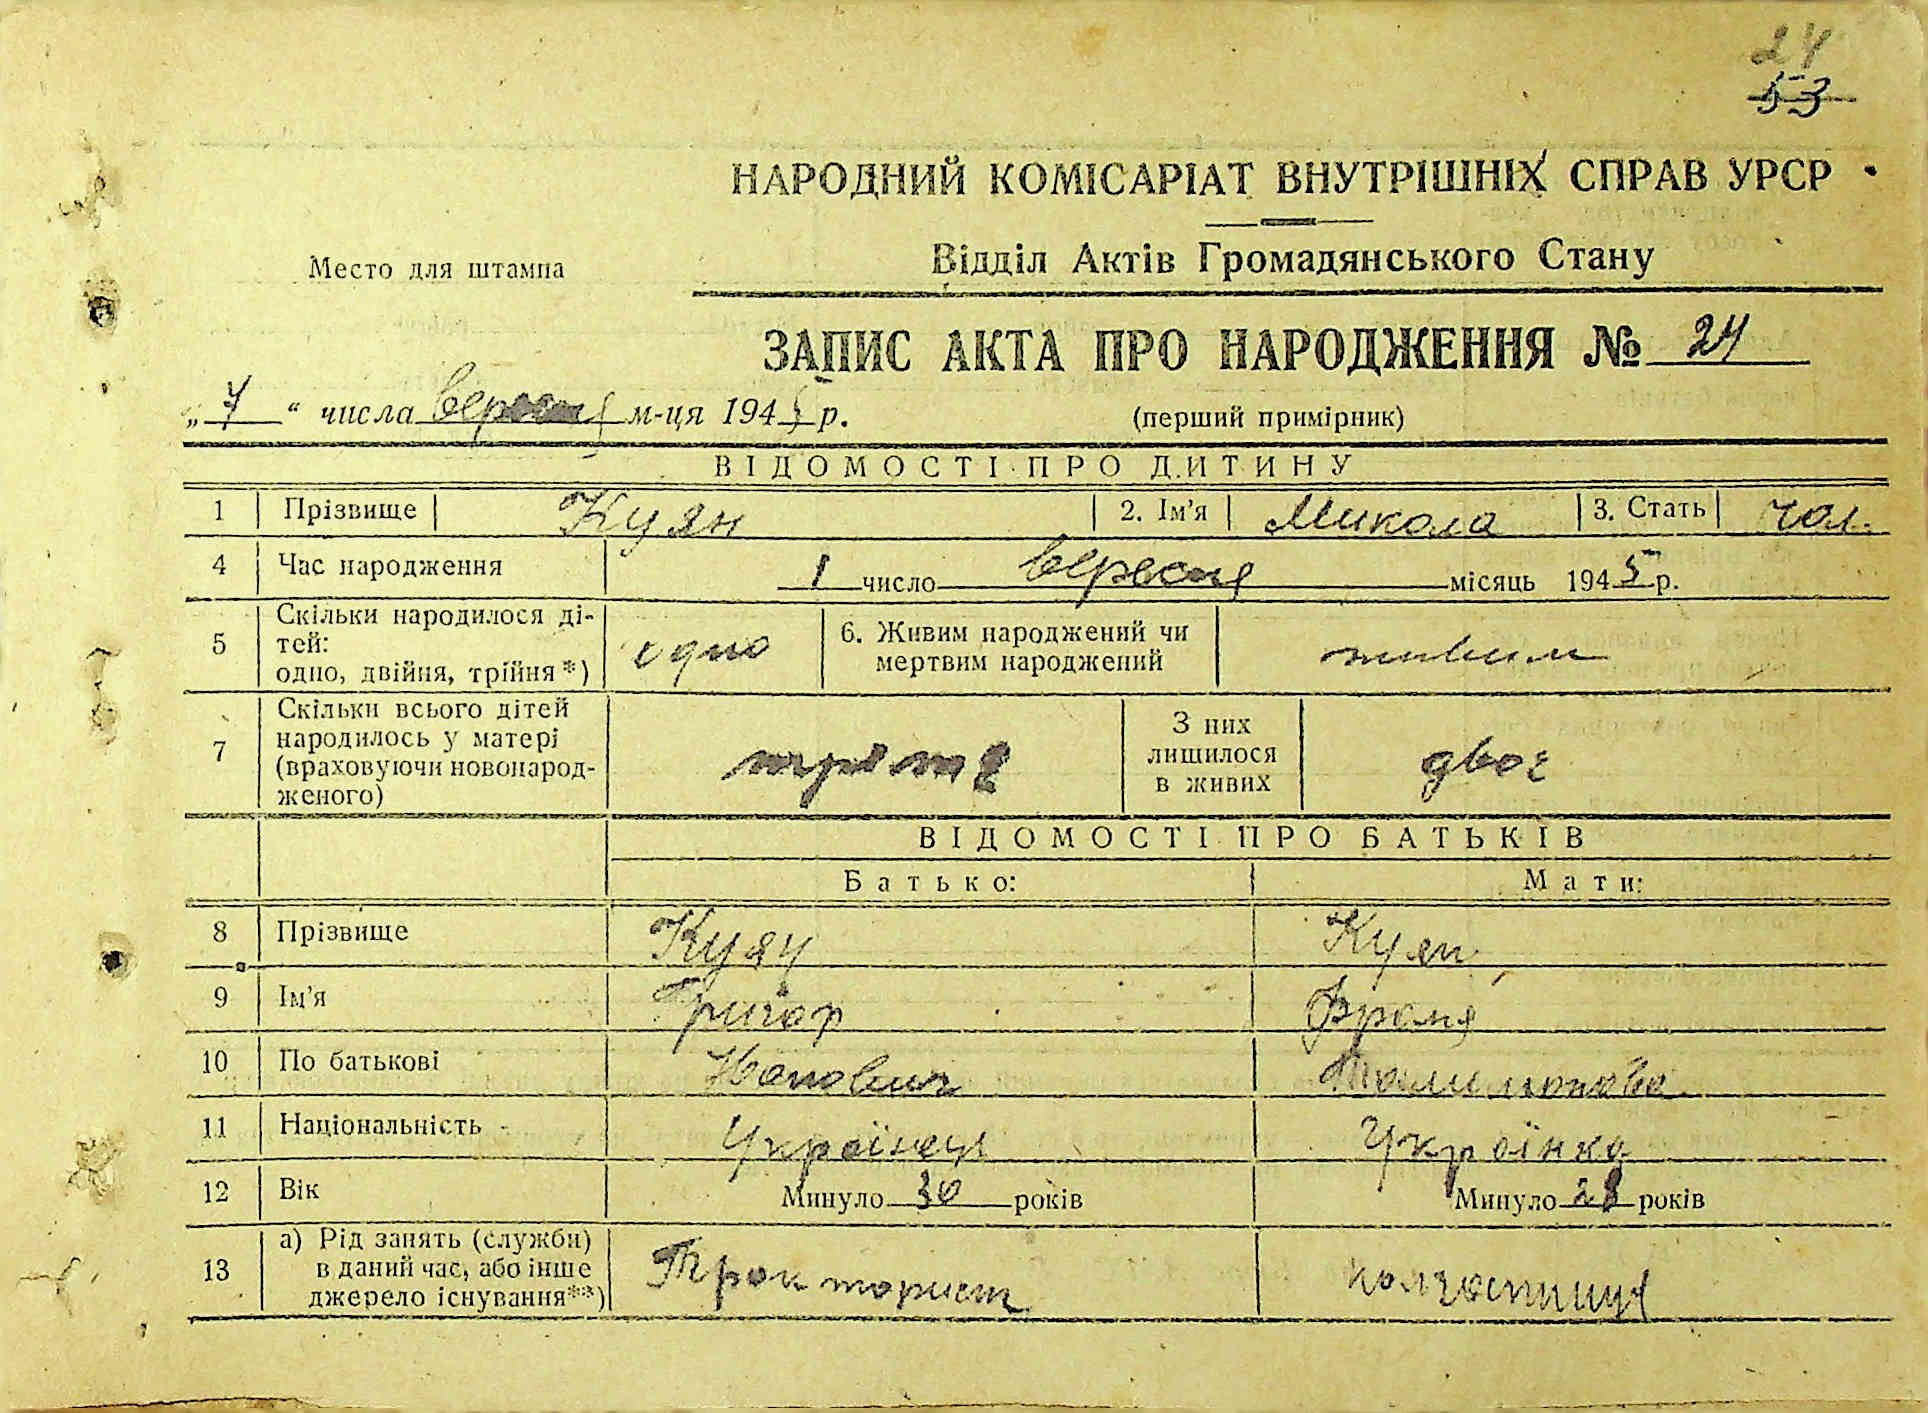 24
53
НАРОДНИЙ КОМІСАРІАТ ВНУТРІШНІХ СПРАВ УРСР
Відділ Актів Громадянського Стану
Место для штампа
ЗАПИС АКТА ПРО НАРОДЖЕННЯ № 24
„7“ числа вересня м-ця 1945 р.
(перший примірник)
ВІДОМОСТІ ПРО ДИТИНУ
1 Прізвище Куян 2. Ім’я Микола 3. Стать чол.
4 Час народження 1 число вересня місяць 1945 р.
5 Скільки народилося ді-
тей:
одно, двійня, трійня*) одно
6. Живим народжений чи
мертвим народжений живим
7 Скільки всього дітей
народилось у матері
(враховуючи новонарод-
женого)
З них
лишилося
в живих двоє
ВІДОМОСТІ ПРО БАТЬКІВ
Батько: Мати:
8 Прізвище Куян Куян
9 Ім’я Григор Фроня
10 По батькові
11 Національність Українець Українка
12 Вік Минуло 30 років Минуло 28 років
13 а) Рід занять (служби)
в даний час, або інше
джерело існування**) Тракторист колгоспниця